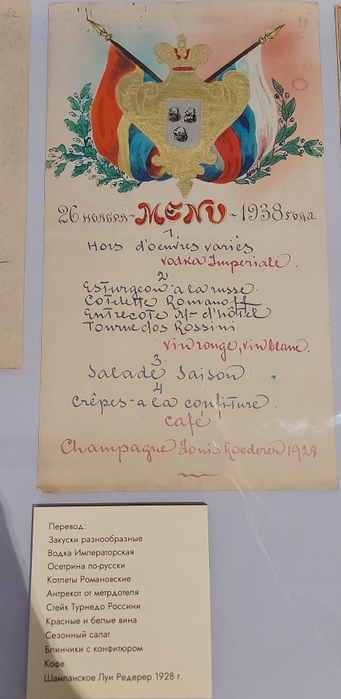 26 ноября - MENU - 1938 года.
1.
Hors d'oeuvres variés
Vodka Imperiale.
2
Esturgeon a la russe
Cotelette Romanoff
Entrecote M- d'hôtel
Tournedos Rossini
Vin rouge, vin blanc.
3
Salade Saison
4
Crêpes a la confiture
Café
Champagne Louis Roederer 1928
Перевод:
Закуски разнообразные
Водка Императорская
Осетрина по-русски
Котлеты Романовские
Антрекот от метрдотеля
Стейк Турнедо Россини
Красные и белые вина
Сезонный салат
Блинчики с конфитюром
Кофе
Шампанское Луи Редерер 1928 г.